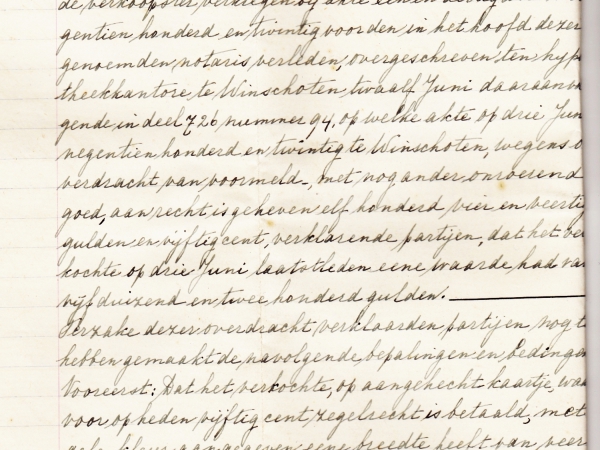 de verkoopster verkregen bij akte
gentien honderd en twintig voor den in het hoofd dezer
genoemden notaris verleden, overgeschreven ten hypo
theekkantore te Winschoten twaalf Juni daaraanvo
gende in deel 726 nummer 94, op welke akte op drie Jun
negentien honderd en twintig te Winschoten, wegens o
verdracht van voormeld-, met nog ander onroerend
goed, aan recht is geheven elf honderd vier en veertig
gulden en vijftig cent, verklarende partijen, dat het ver
kochte op drie Juni laatstleden eene waarde had van
vijfduizend en twee honderd gulden.
Terzake dezer overdracht verklaarden partijen nog te
hebben gemaakt de navolgende bepalingen en bedingen
Vooreerst: Dat het verkochte, op aangehecht kaartje, waar
voor op heden vijftig cent zegelrecht is betaald, met
gele kleur aangegeven eene breedte heeft van veer